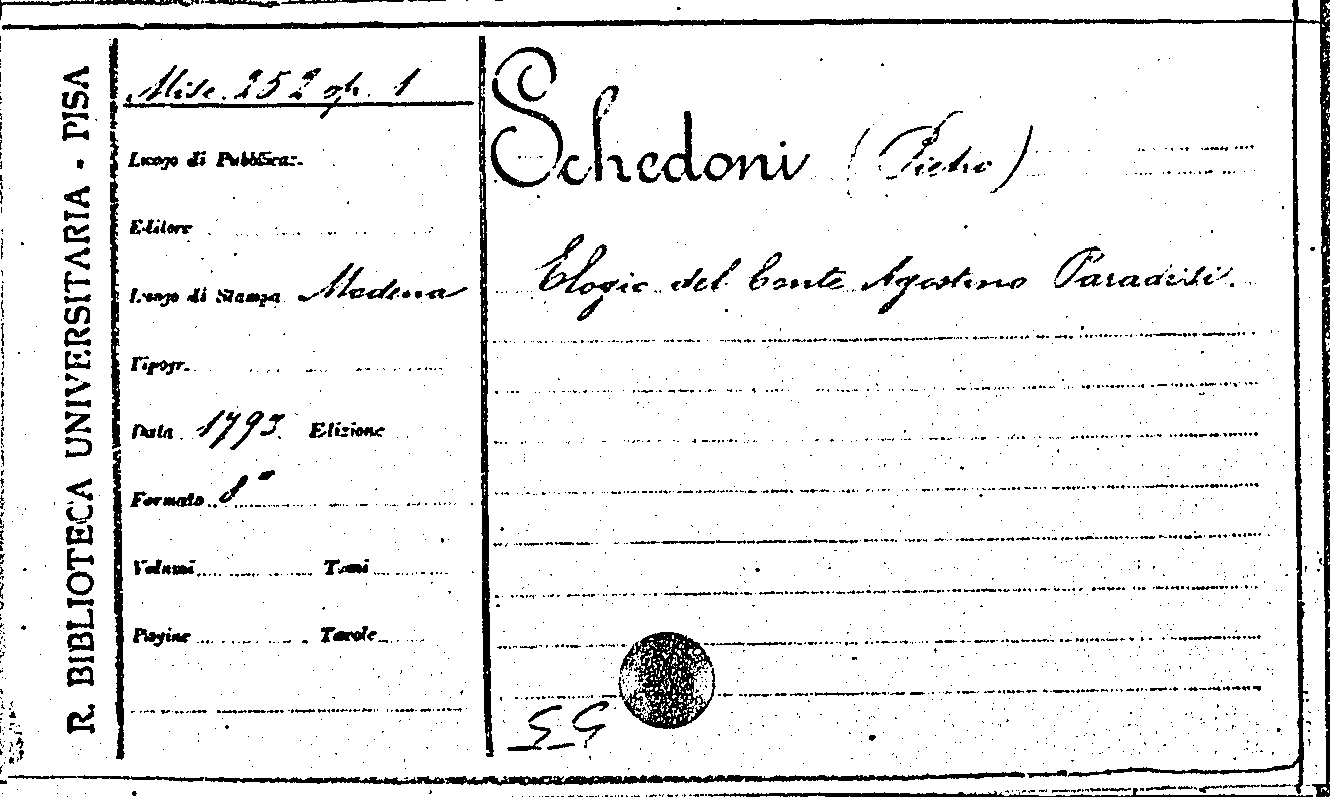 R. BIBLIOTECA UNIVERSITARIA - PISA
Misc. 252 op. 1
Luogo di Pubblicaz.
Editore
Luogo di Stampa Modena
Tipogr.
Data 1793 Edizione
Formato 8°
Volumi Tomi
Pagine Tavole
Schedoni (Pietro)
Elogio del Conte Agostino Paradisi.